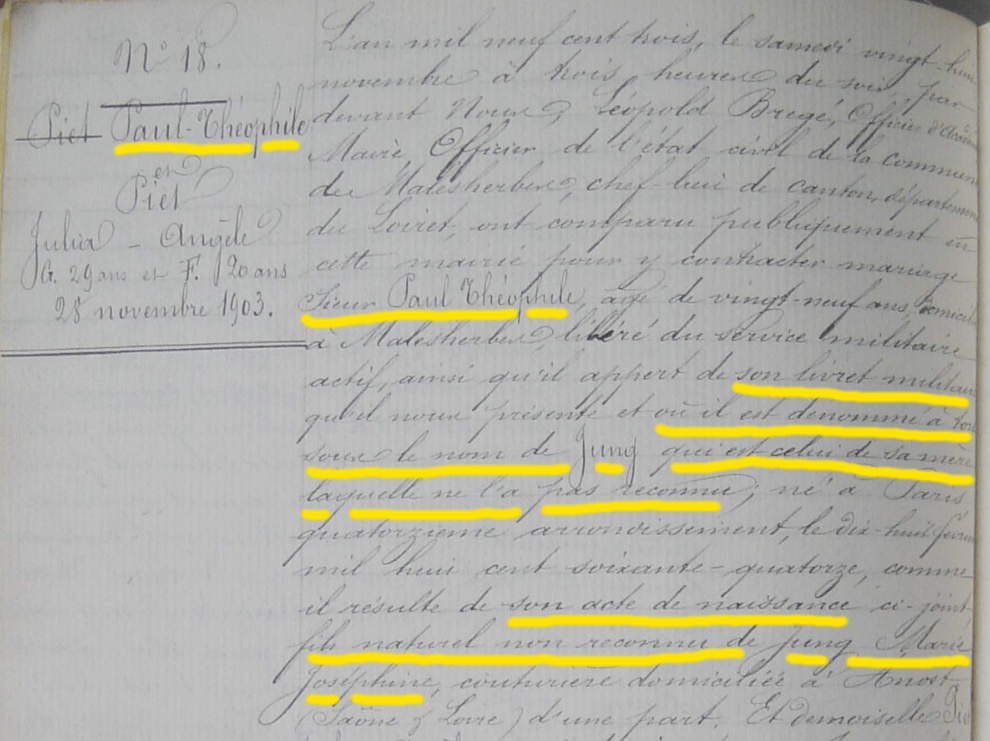 N° 18.
Piet Paul-Théophile
et
Piet
Julia - Angèle
G. 29 ans et F. 20 ans
28 novembre 1903.
L'an mil neuf cent trois, le samedi vingt-huit
novembre à trois heures du soir, par
devant Nous, Léopold Bregé, Officier d'Académie
Maire, Officier de l'état civil de la commune
de Malesherbes, chef-lieu de canton, département
du Loiret, ont comparu publiquement en
cette mairie pour y contracter mariage
Sieur Paul Théophile, âgé de vingt-neuf ans, domicilié
à Malesherbes, libéré du service militaire
actif, ainsi qu'il appert de son livret militaire
qu'il nous présente et où il est dénommé à tort
sous le nom de Jung qui est celui de sa mère
laquelle ne l'a pas reconnu; né à Paris
quatorzième arrondissement, le dix-huit février
mil huit cent soixante-quatorze, comme
il résulte de son acte de naissance ci-joint,
fils naturel non reconnu de Jung Marie
Joséphine, couturière domiciliée à Anost
(Saône & Loire) d'une part. Et demoiselle